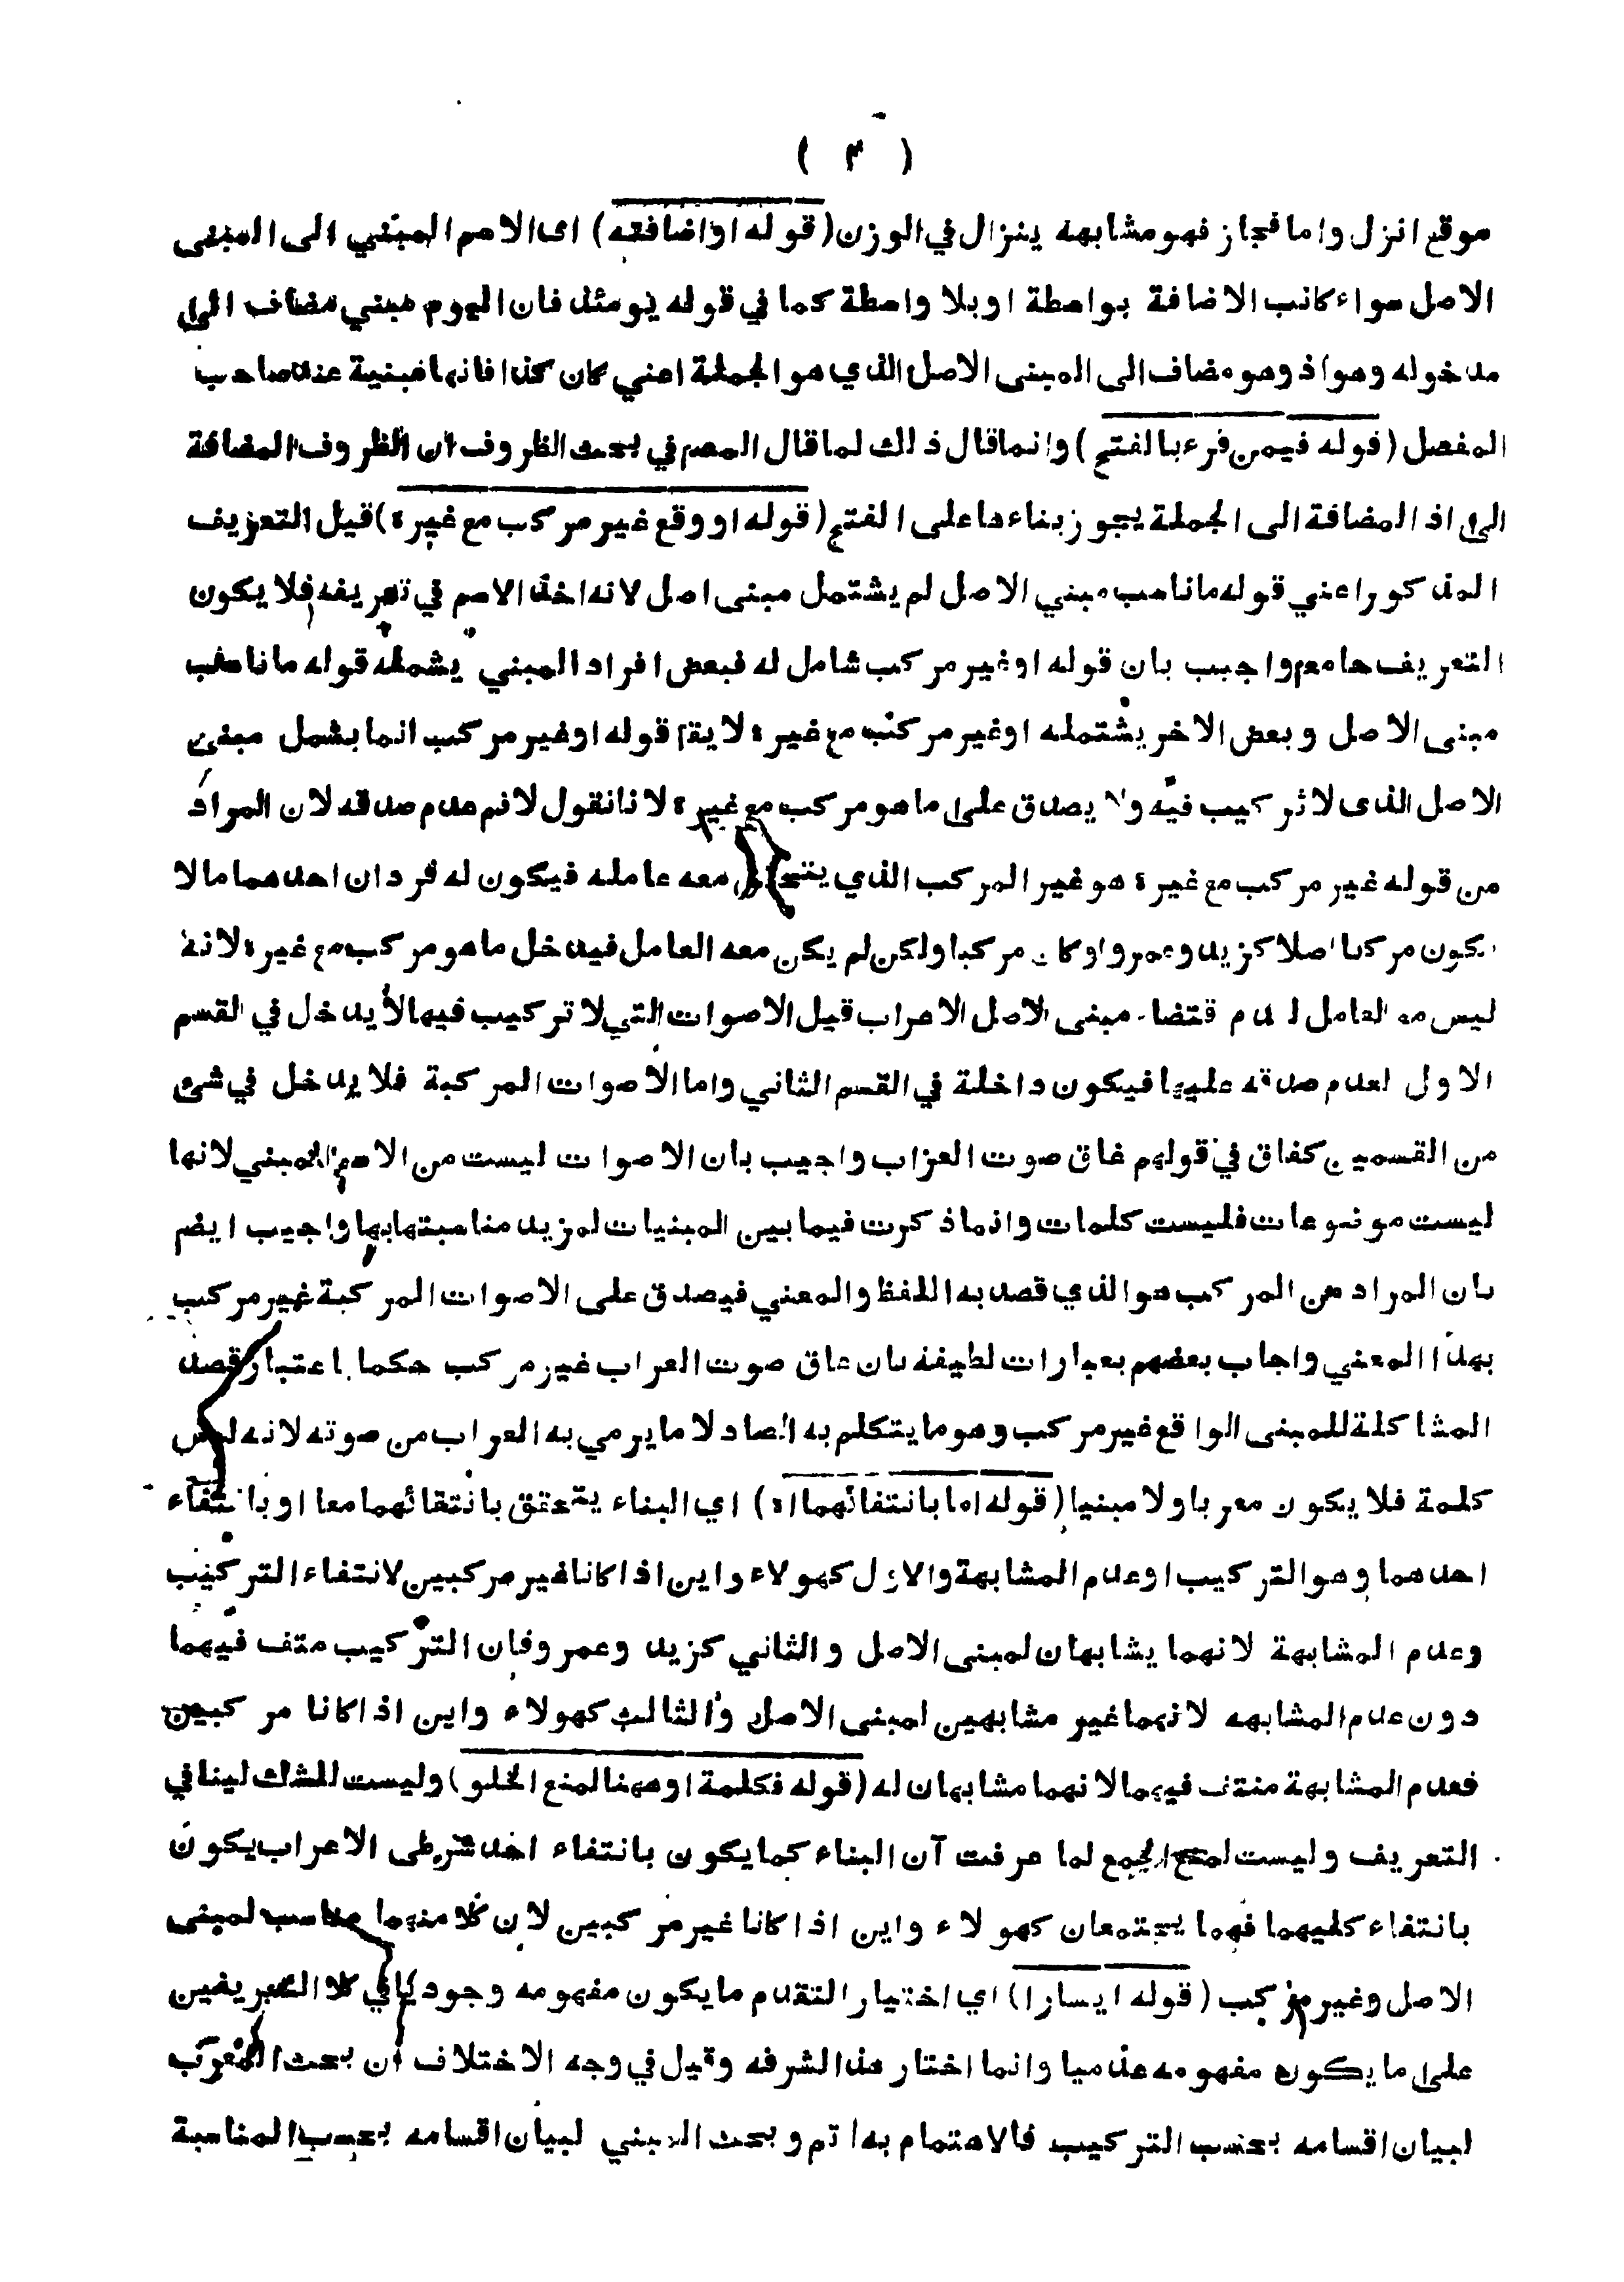 ( ٣ )
موقع انزل واما فجاز فهو مشابهه ينزال في الوزن (قوله او اضافته) اى الاسم المبني الى المبنى
الاصل سواء كانب الاضافة بواسطة او بلا واسطة كما في قوله يومئذ فان اليوم مبني مضاف الى
مدخوله وهو اذ وهو مضاف الى المبنى الاصل الذي هو الجملة اعني كان كذا فانها مبنية عند صاحب
المفصل (قوله فيمن قرء بالفتح) وانما قال ذلك لما قال المصم في بحث الظروف ان الظروف المضافة
الى اذ المضافة الى الجملة يجوز بناءها على الفتح (قوله او وقع غير مركب مع غيره) قيل التعريف
المذكور اعني قوله ما ناسب مبني الاصل لم يشتمل مبنى اصل لانه اخذ الاسم في تعريفه فلا يكون
التعريف جامعم واجيب بان قوله او غير مركب شامل له فبعض افراد المبني يشمله قوله ما ناسب
مبنى الاصل وبعض الاخر يشتمله او غير مركب مع غيره لا يقم قوله او غير مركب انما يشمل مبنى
الاصل الذى لا تركيب فيه ولا يصدق على ما هو مركب مع غيره لانا نقول لانم عدم صدقه لان المراد
من قوله غير مركب مع غيره هو غير المركب الذي يتحقق معه عامله فيكون له فردان احدهما ما لا
يكون مركبا اصلا كزيد وعمرو او كان مركبا ولكن لم يكن معه العامل فيدخل ما هو مركب مع غيره لانه
ليس معه العامل لعدم قتضاء مبنى الاصل الاعراب قيل الاصوات التي لا تركيب فيها لا يدخل في القسم
الاول لعدم صدقه عليها فيكون داخلة في القسم الثاني واما الاصوات المركبة فلا يدخل في شئ
من القسمين كغاق في قولهم غاق صوت الغراب واجيب بان الاصوات ليست من الاسم المبني لانها
ليست موضوعات فليست كلمات وانما ذكرت فيما بين المبنيات لمزيد مناسبتها بها واجيب ايضم
بان المراد من المركب هو الذي قصد به اللفظ والمعني فيصدق على الاصوات المركبة غير مركب
بهذا المعني واجاب بعضهم بعبارات لطيفة بان غاق صوت الغراب غير مركب حكما باعتبار قصد
المشاكلة للمبنى الواقع غير مركب وهو ما يتكلم به الصاد لا ما يرمي به الغراب من صوته لانه ليس
كلمة فلا يكون معربا ولا مبنيا (قوله اما بانتفائهما اه) اي البناء يتحقق بانتفائهما معا او بانتفاء
احدهما وهو التركيب او عدم المشابهة والاول كهولاء واين اذا كانا غير مركبين لانتفاء التركيب
وعدم المشابهة لانهما يشابهان لمبنى الاصل والثاني كزيد وعمرو فان التركيب متف فيهما
دون عدم المشابهه لانهما غير مشابهين لمبنى الاصل والثالث كهولاء واين اذا كانا مركبين
فعدم المشابهة منتف فيهما لانهما مشابهان له (قوله فكلمة او ههنا لمنع الخلو) وليست للشك لينافي
التعريف وليست لمنع الجمع لما عرفت آن البناء كما يكون بانتفاء احد شرطى الاعراب يكون
بانتفاء كليهما فهما يجتمعان كهولاء واين اذا كانا غير مركبين لان كلا منهما مناسب لمبنى
الاصل وغير مركب (قوله ايسارا) اي اختيار التقدم ما يكون مفهومه وجوديا في كلا التعريفين
على ما يكون مفهومه عدميا وانما اختار هذا الشرفه وقيل في وجه الاختلاف ان بحث المعرب
لبيان اقسامه بحسب التركيب فالاهتمام به اتم وبحث المبني لبيان اقسامه بحسب المناسبة